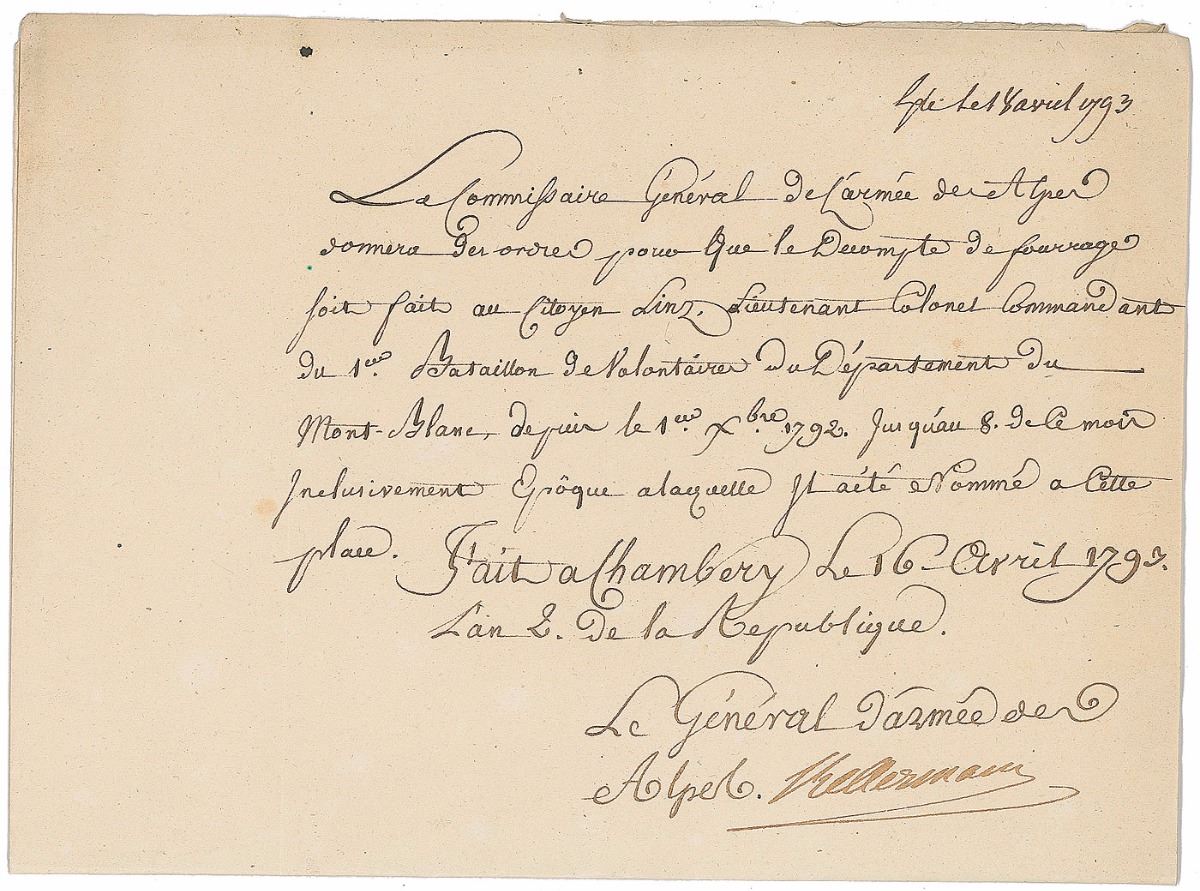 Exp.dié le 18 avril 1793
Le Commissaire Général de L'armée des Alpes
donnera des ordres pour que le Decompte de fourrage
soit fait au Citoyen Linz, Lieutenant Colonel Commandant
du 1.er Bataillon de Volontaires du Département du
Mont-Blanc, depuis le 1.er X.bre 1792. Jusqu'au 8. de Ce mois
Inclusivement Epôque a laquelle Il a été Nommé a Cette
place. Fait a Chambery Le 16 Avril 1793.
L'an 2. de la Republique.
Le Général d'armée des
Alpes. Kellermann